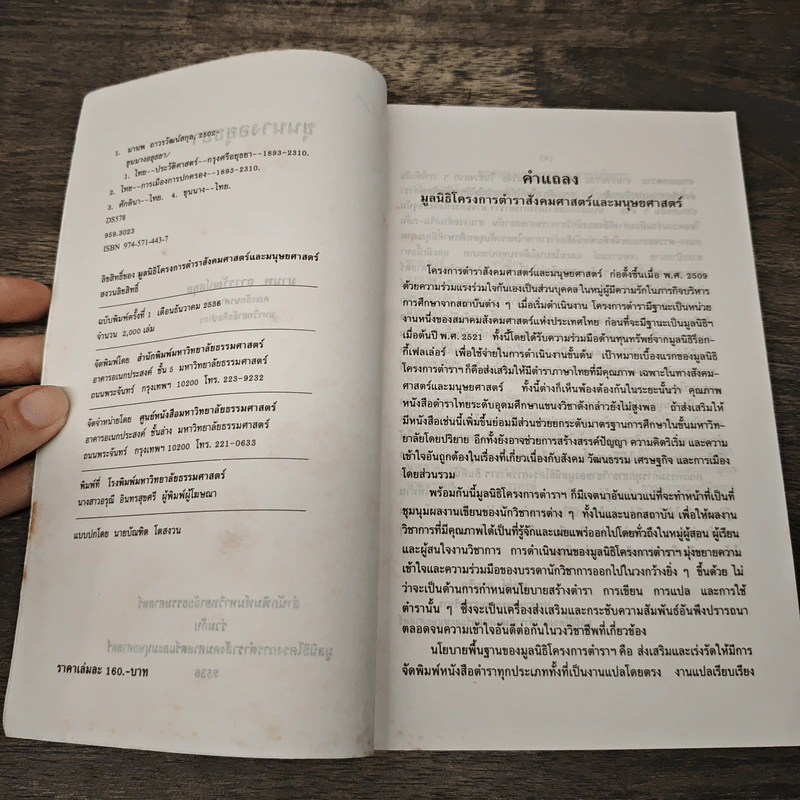 1. มานพ ถาวรวัฒน์สกุล, 2502-
ขุนนางอยุธยา/
1. ไทย--ประวัติศาสตร์--กรุงศรีอยุธยา--1893-2310.
2. ไทย--การเมืองการปกครอง--1893-2310.
3. ศักดินา--ไทย. 4. ขุนนาง--ไทย.
DS578
959.3023
ISBN 974-571-443-7
ลิขสิทธิ์ของ มูลนิธิโครงการตำราสังคมศาสตร์และมนุษยศาสตร์
สงวนลิขสิทธิ์
ฉบับพิมพ์ครั้งที่ 1 เดือนธันวาคม 2536
จำนวน 2,000 เล่ม
จัดพิมพ์โดย สำนักพิมพ์มหาวิทยาลัยธรรมศาสตร์
อาคารอเนกประสงค์ ชั้น 5 มหาวิทยาลัยธรรมศาสตร์
ถนนพระจันทร์ กรุงเทพฯ 10200 โทร. 223-9232
จัดจำหน่ายโดย ศูนย์หนังสือมหาวิทยาลัยธรรมศาสตร์
อาคารอเนกประสงค์ ชั้นล่าง มหาวิทยาลัยธรรมศาสตร์
ถนนพระจันทร์ กรุงเทพฯ 10200 โทร. 221-0633
พิมพ์ที่ โรงพิมพ์มหาวิทยาลัยธรรมศาสตร์
นางสาวอรุณี อินทรสุขศรี ผู้พิมพ์ผู้โฆษณา
แบบปกโดย นายบัณฑิต โตสงวน
ราคาเล่มละ 160.-บาท
คำแถลง
มูลนิธิโครงการตำราสังคมศาสตร์และมนุษยศาสตร์
โครงการตำราสังคมศาสตร์และมนุษยศาสตร์ ก่อตั้งขึ้นเมื่อ พ.ศ. 2509
ด้วยความร่วมแรงร่วมใจกันเองเป็นส่วนบุคคล ในหมู่ผู้มีความรักในภารกิจบริหาร
การศึกษาจากสถาบันต่าง ๆ เมื่อเริ่มดำเนินงาน โครงการตำรามีฐานะเป็นหน่วย
งานหนึ่งของสมาคมสังคมศาสตร์แห่งประเทศไทย ก่อนที่จะมีฐานะเป็นมูลนิธิฯ
เมื่อต้นปี พ.ศ. 2521 ทั้งนี้โดยได้รับความร่วมมือด้านทุนทรัพย์จากมูลนิธิร็อก-
กี้เฟลเล่อร์ เพื่อใช้จ่ายในการดำเนินงานขั้นต้น เป้าหมายเบื้องแรกของมูลนิธิ
โครงการตำราฯ ก็คือส่งเสริมให้มีตำราภาษาไทยที่มีคุณภาพ เฉพาะในทางสังคม-
ศาสตร์และมนุษยศาสตร์ ทั้งนี้ต่างก็เห็นพ้องต้องกันในระยะนั้นว่า คุณภาพ
หนังสือตำราไทยระดับอุดมศึกษาแขนงวิชาดังกล่าวยังไม่สูงพอ ถ้าส่งเสริมให้
มีหนังสือเช่นนี้เพิ่มขึ้นย่อมมีส่วนช่วยยกระดับมาตรฐานการศึกษาในขั้นมหาวิท-
ยาลัยโดยปริยาย อีกทั้งยังอาจช่วยการสร้างสรรค์ปัญญา ความคิดริเริ่ม และความ
เข้าใจอันถูกต้องในเรื่องที่เกี่ยวเนื่องกับสังคม วัฒนธรรม เศรษฐกิจ และการเมือง
โดยส่วนรวม
พร้อมกันนี้มูลนิธิโครงการตำราฯ ก็มีเจตนาอันแนวแน่ที่จะทำหน้าที่เป็นที่
ชุมนุมผลงานเขียนของนักวิชาการต่าง ๆ ทั้งในและนอกสถาบัน เพื่อให้ผลงาน
วิชาการที่มีคุณภาพได้เป็นที่รู้จักและเผยแพร่ออกไปโดยทั่วถึงในหมู่ผู้สอน ผู้เรียน
และผู้สนใจงานวิชาการ การดำเนินงานของมูลนิธิโครงการตำราฯ มุ่งขยายความ
เข้าใจและความร่วมมือของบรรดานักวิชาการออกไปในวงกว้างยิ่ง ๆ ขึ้นด้วย ไม่
ว่าจะเป็นด้านการกำหนดนโยบายสร้างตำรา การเขียน การแปล และการใช้
ตำรานั้น ๆ ซึ่งจะเป็นเครื่องส่งเสริมและกระชับความสัมพันธ์อันพึงปรารถนา
ตลอดจนความเข้าใจอันดีต่อกันในวงวิชาชีพที่เกี่ยวข้อง
นโยบายพื้นฐานของมูลนิธิโครงการตำราฯ คือ ส่งเสริมและเร่งรัดให้มีการ
จัดพิมพ์หนังสือตำราทุกประเภททั้งที่เป็นงานแปลโดยตรง งานแปลเรียบเรียง